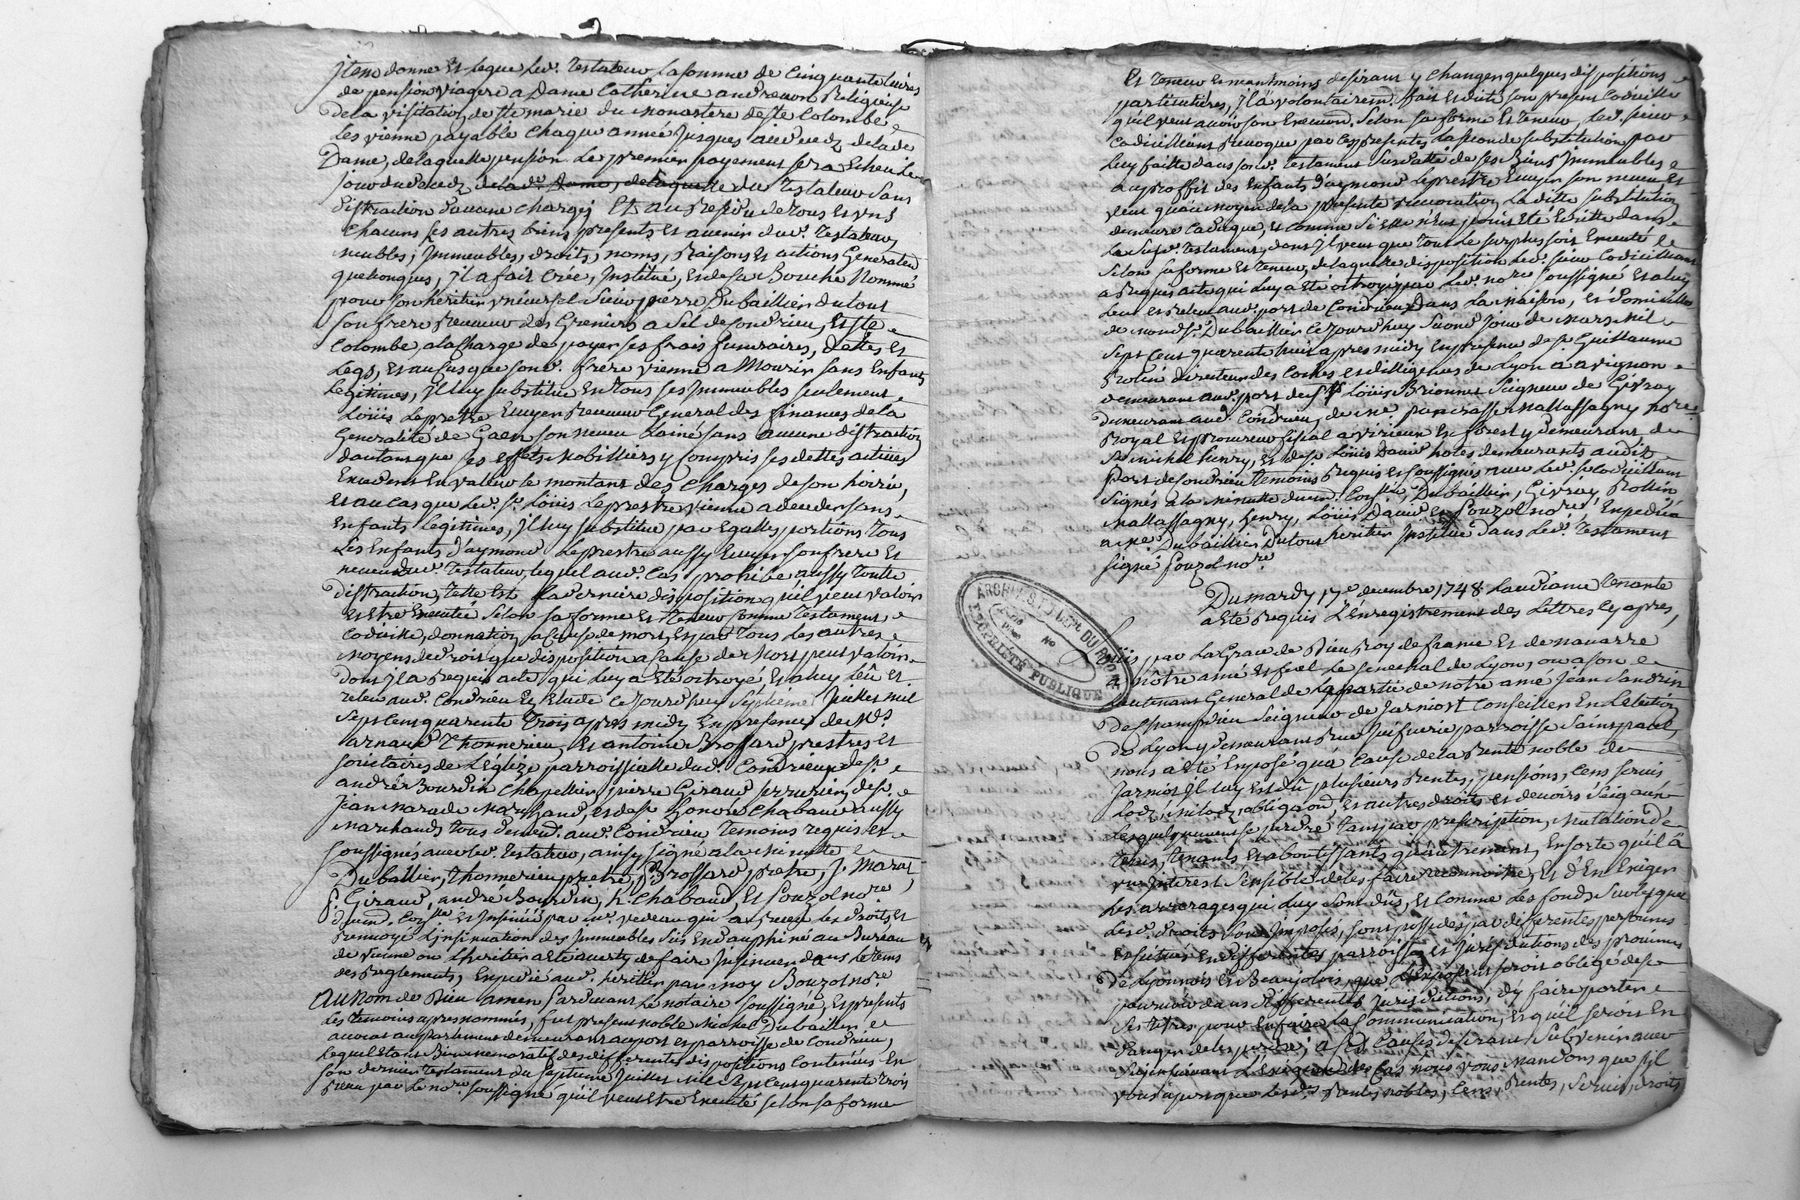 Jtem donne et legue led. testateur la somme de cinquante livres
de pension viagere a Dame Catherine andrevon Religieuse
de la visitation de Ste marie du monastere de Ste Colombe
les vienne payable chaque année jusques au decedz de lade
Dame, de laquelle pension le premier payement sera echeu le
jour du decedz de lade. Dame, de laquelle du testateur sans
distraction d'aucune charges Et au Residu de tous et uns
chacuns ses autres biens presents et avenir dud. testateur
meubles, Jmmeubles, droits, noms, Raisons et actions Generalemt
quelconques, jl a fait Créé, Jnstitué, et de sa Bouche Nommé
pour son heritier universel Sieur pierre Dubaillier dutour
son frere Receveur des Greniers a Sel de Condrieu, et Ste
Colombe, a la charge de payer ses frais funeraires, dettes et
Legs, et au cas que sond. frere vienne a Mourir sans Enfants
Legitimes, jl luy substitue en tous ses Jmmeubles seulement
Loüis Leprestre Ecuyer Receveur General des finances de la
Generalité de Caen son neveu L'ainé sans aucune distraction
d'autant que ses effets Mobilliers y compris ses dettes actives
Excedent En valeur le montant des charges de son hoirie,
et au cas que led. Sr. Loüis Leprestre vienne a deceder sans
Enfants Legitimes, jl luy substitue par Egalles portions tous
les Enfants d'aymond Leprestre aussy Ecuyer son frere et
neveu dud. testateur, lequel aud. Cas prohibe aussy toute
distraction, telle est la derniere disposition qu'il veut valoir
et etre Executée selon sa forme et teneur comme testament,
Codicile, donnation a cause de mort, et par tous les autres
moyens de droit que disposition a cause de Mort peut valoir
dont jl a Requis acte qui luy a été octroyé et a luy leû et
releu aud. Condrieu En Etude ce jourd'huy Septieme Juillet mil
Sept cent quarente trois apres midy En presence de Mrs.
arnaud thonnerieu, et antoine Brossard prestres et
societaires de L'Eglize parroissialle dud. Condrieu, de Sr.
andré Bourdin Chapellier, pierre Giraud serrurier, de Sr.
Jean Marade Marchand, et de Sr. Honoré Chabaud aussy
Marchands tous demeurt. aud. Condrieu temoins requis et
soussignés avec led. testateur, ainsy signé a la minute
Dubaillier, thonnerieu pretre, Brossard pretre, J. Marat
p. Giraud, andré Bourdin, h. Chabaud, et Fouzol nore
et Jnsinué par Mr. vedeau qui a Receu les droits et
Renvoyé l'jnsinuation des Jmmeubles sis En dauphiné au Bureau
de vienne ou l'heritier a eté averty de faire Jnsinuer dans le tems
des Reglements, Expedié aud. heritier par moy Bouzol nore.
AU Nom de Dieu amen Pardevant Le notaire soussigné, et presents
Les temoins apres nommés, fut present noble Michel Dubaillier
avocat au parlement demeurant au port et parroisse de Condrieu,
lequel etant Bien memoratif des differentes dispositions contenües En
son dernier testament du septieme Juillet mil sept cent quarente trois
Receu par le nore. soussigné qu'il veut etre Executé selon sa forme
Et Teneur et neantmoins desirant y changer quelques dispositions
particulieres, jl a volontairemt. fait et dicté son present Codicille
qu'il veut avoir son Execuon. selon sa forme et teneur, led. sieur
codicillant Revoque par ces presentes la seconde substitution par
luy faitte dans sond. testament susdatté de ses Biens Jmmeubles
au proffit des Enfants d'aymond Leprestre Ecuyer son neveu et
veut qu'au moyen de la presente revocation laditte substitution
demeure caduque, et comme si elle n'eut point eté Ecritte dans
Le susd. testament, dont jl veut que tout le surplus soit Executé
selon sa forme et teneur, de laquelle disposition led. sieur Codicillant
a Requis acte qui luy a eté octroyé par led. nore. soussigné et a luy
leu et releu aud. port de Condrieu Dans la Maison, et domicille
de mond. Sr. Dubaillier ce jourd'huy second jour de Mars Mil
Sept Cent quarente huit apres midy En presence de Sr. Guillaume
Rolin Directeur des Coches et dilligences de Lyon a avignon
demeurant aud. port de Sr. Loüis Brionnet Seigneur de Givray
demeurant aud. Condrieu, de Me. pancrasse Mallassagny nore.
Royal et procureur fiscal a virieu En forest y demeurant de
Sr. michel henry, et de Sr. Loüis David hotes demeurants audit
Port de Condrieu temoins Requis et soussignés avec led. Sr. codicillant
signés a la minutte Dubaillier, Givray, Rollin
Mallassagny, henry, Loüis David et Fouzol nore. Expedié
a Me. Dubaillier Dutour heritier Jnstitué dans led. testament
signé Fouzol nore.
Du mardy 17e decembre 1748 L'audiance tenante
a eté Requis L'enregistrement des Lettres cy apres,
Loüis par La Grace de Dieu Roy de france et de navarre
A nôtre amé et feal le senechal de Lyon, ou a son
Lieutenant General de la partie de notre amé Jean Jandrin
De Champdieu Seigneur de Jarniost Conseiller En L'election
De Lyon y demeurant Rue Juifverie parroisse saint paul,
nous a eté Exposé qu'a cause de la Rente noble de
Jarniost jl luy est dû plusieurs Rentes, pensions, cens servis
Lodz, milodz, obligaon. et autres droits et devoirs seigaux
Lesquels peuvent se perdre tant par prescription, mutation de
terres, tenants et aboutissants qu'autrement, Ensorte qu'il a
un jnterest sensible de les faire reconnoitre, et d'En Exiger
Les arrerages qui luy sont dûs, et comme les fonds sur lesquels
Lesd. droits sont Jmposés, sont possedés par differentes personnes
et situés En differentes parroisses et Jurisdictions des provinces
De Lyonnois et Beaujolois, que L'exposant seroit obligé de se
pourvoir dans differentes Jurisdictions, d'y faire porter
ses titres pour En faire la Communication, et qu'il seroit En
Danger de les perdre; A Ces Causes desirant subvenir aux
suivant l'exigence des cas nous vous mandons que s'il
vous appert que lesd. Rentes nobles, Cens, Rentes, Servis, droits
ARCHIVES DU DÉPt. DU RHÔNE
PROPRIÉTÉ PUBLIQUE
No